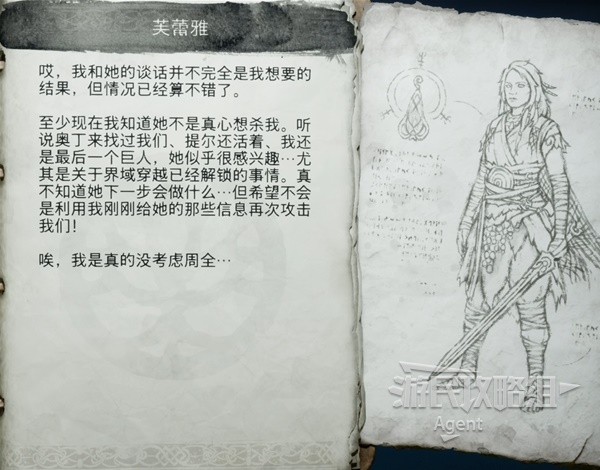 芙蕾雅
哎，我和她的谈话并不完全是我想要的
结果，但情况已经算不错了。
至少现在我知道她不是真心想杀我。听
说奥丁来找过我们、提尔还活着、我还
是最后一个巨人，她似乎很感兴趣…尤
其是关于界域穿越已经解锁的事情。真
不知道她下一步会做什么…但希望不会
是利用我刚刚给她的那些信息再次攻击
我们！
唉，我是真的没考虑周全…
游民攻略组
Agent